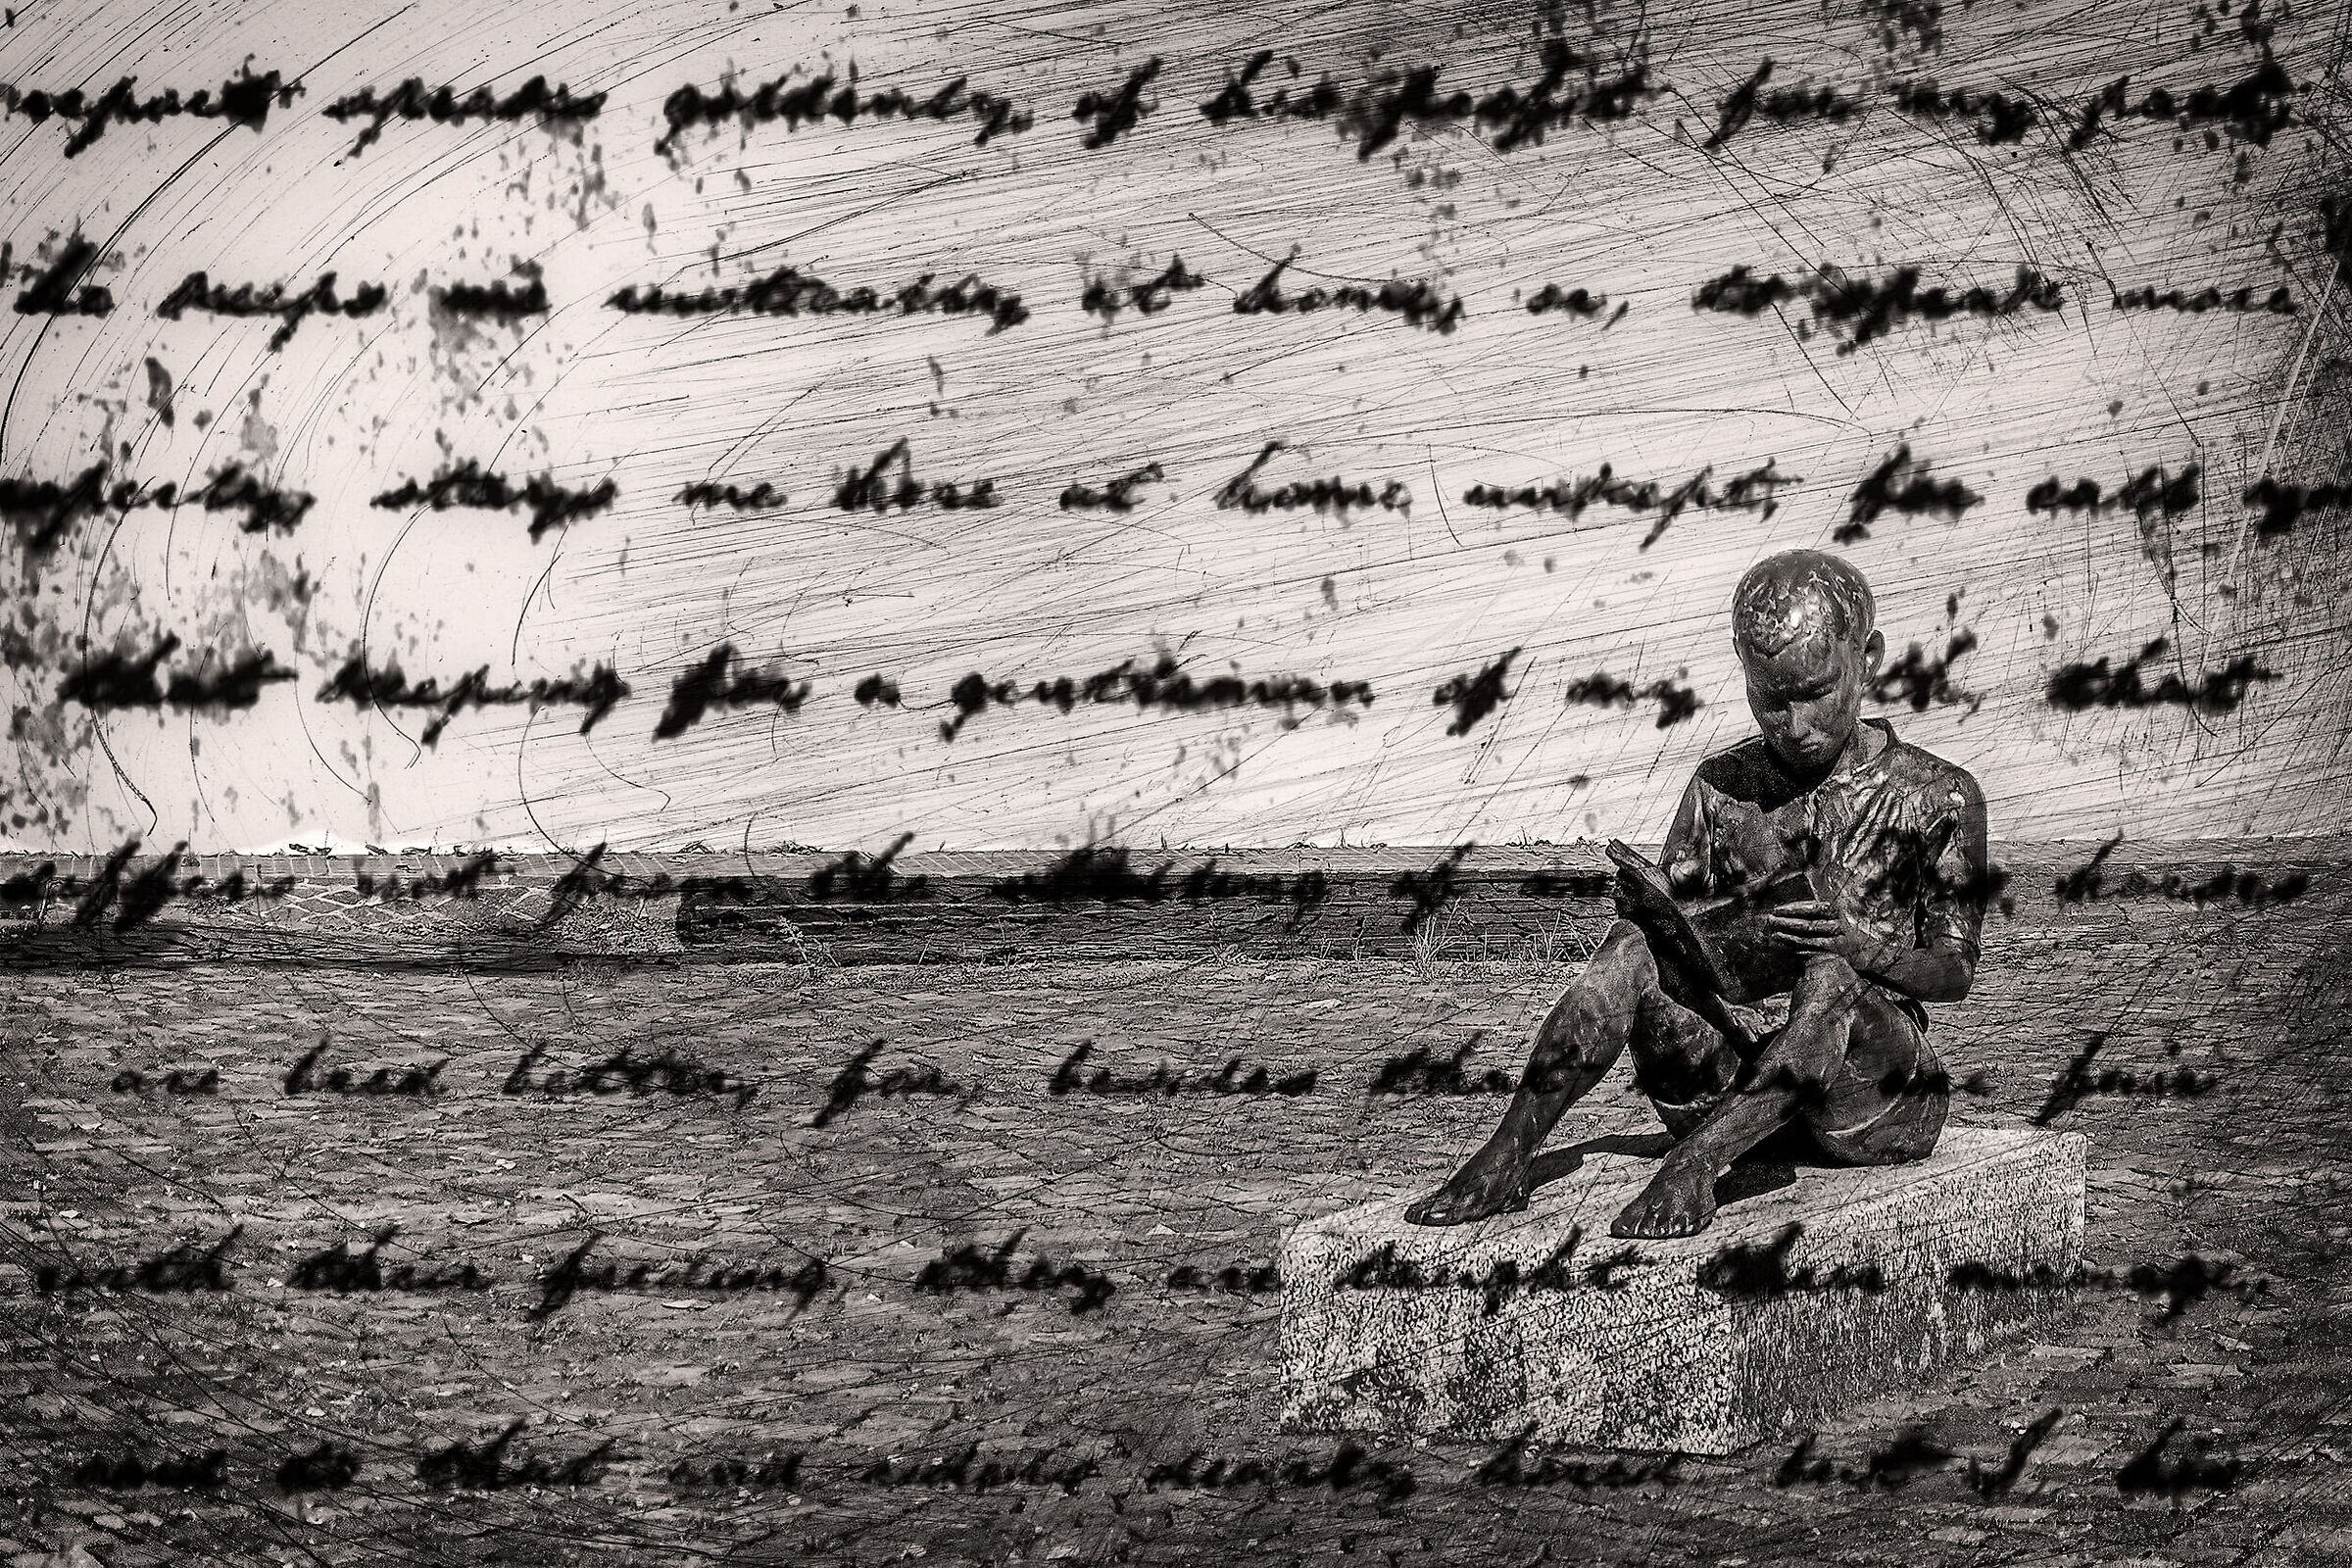 report speaks goldenly of his profit: for my part,
he keeps me rustically at home, or, to speak more
properly, stays me here at home unkept; for call you
that keeping for a gentleman of my th, that
differs not from the stalling of an ? His horses
are bred better; for, besides that they are fair
with their feeding, they are taught their manage,
and to that end riders dearly hired: but I, his